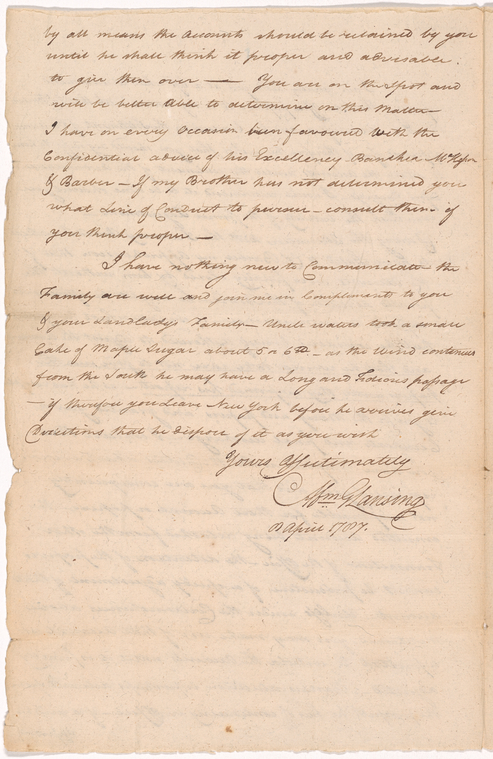 by all means the Accounts should be retained by you
until he shall think it proper and adviseable.
to give them over — You are on the Spot and
will be better Able to determine on this Matter
I have on every Occasion been favoured with the
Confidential advice of his Excellency Banchea McKesson
& Barber — If my Brother has not determined you
what Line of Conduct to persue — consult them if
you think proper —
I have nothing new to Communicate the
Family are well and join me in Complements to you
& your Landladys Family — Uncle waters took a small
Cake of Maple Sugar about 5 or 6 — as the Wind continues
from the South he may have a Long and Tedious passage
— if therefore you Leave New York before he arrives give
Directions that he dispose of it as you wish
Yours Affectimately
Abm G Lansing
April 1787.